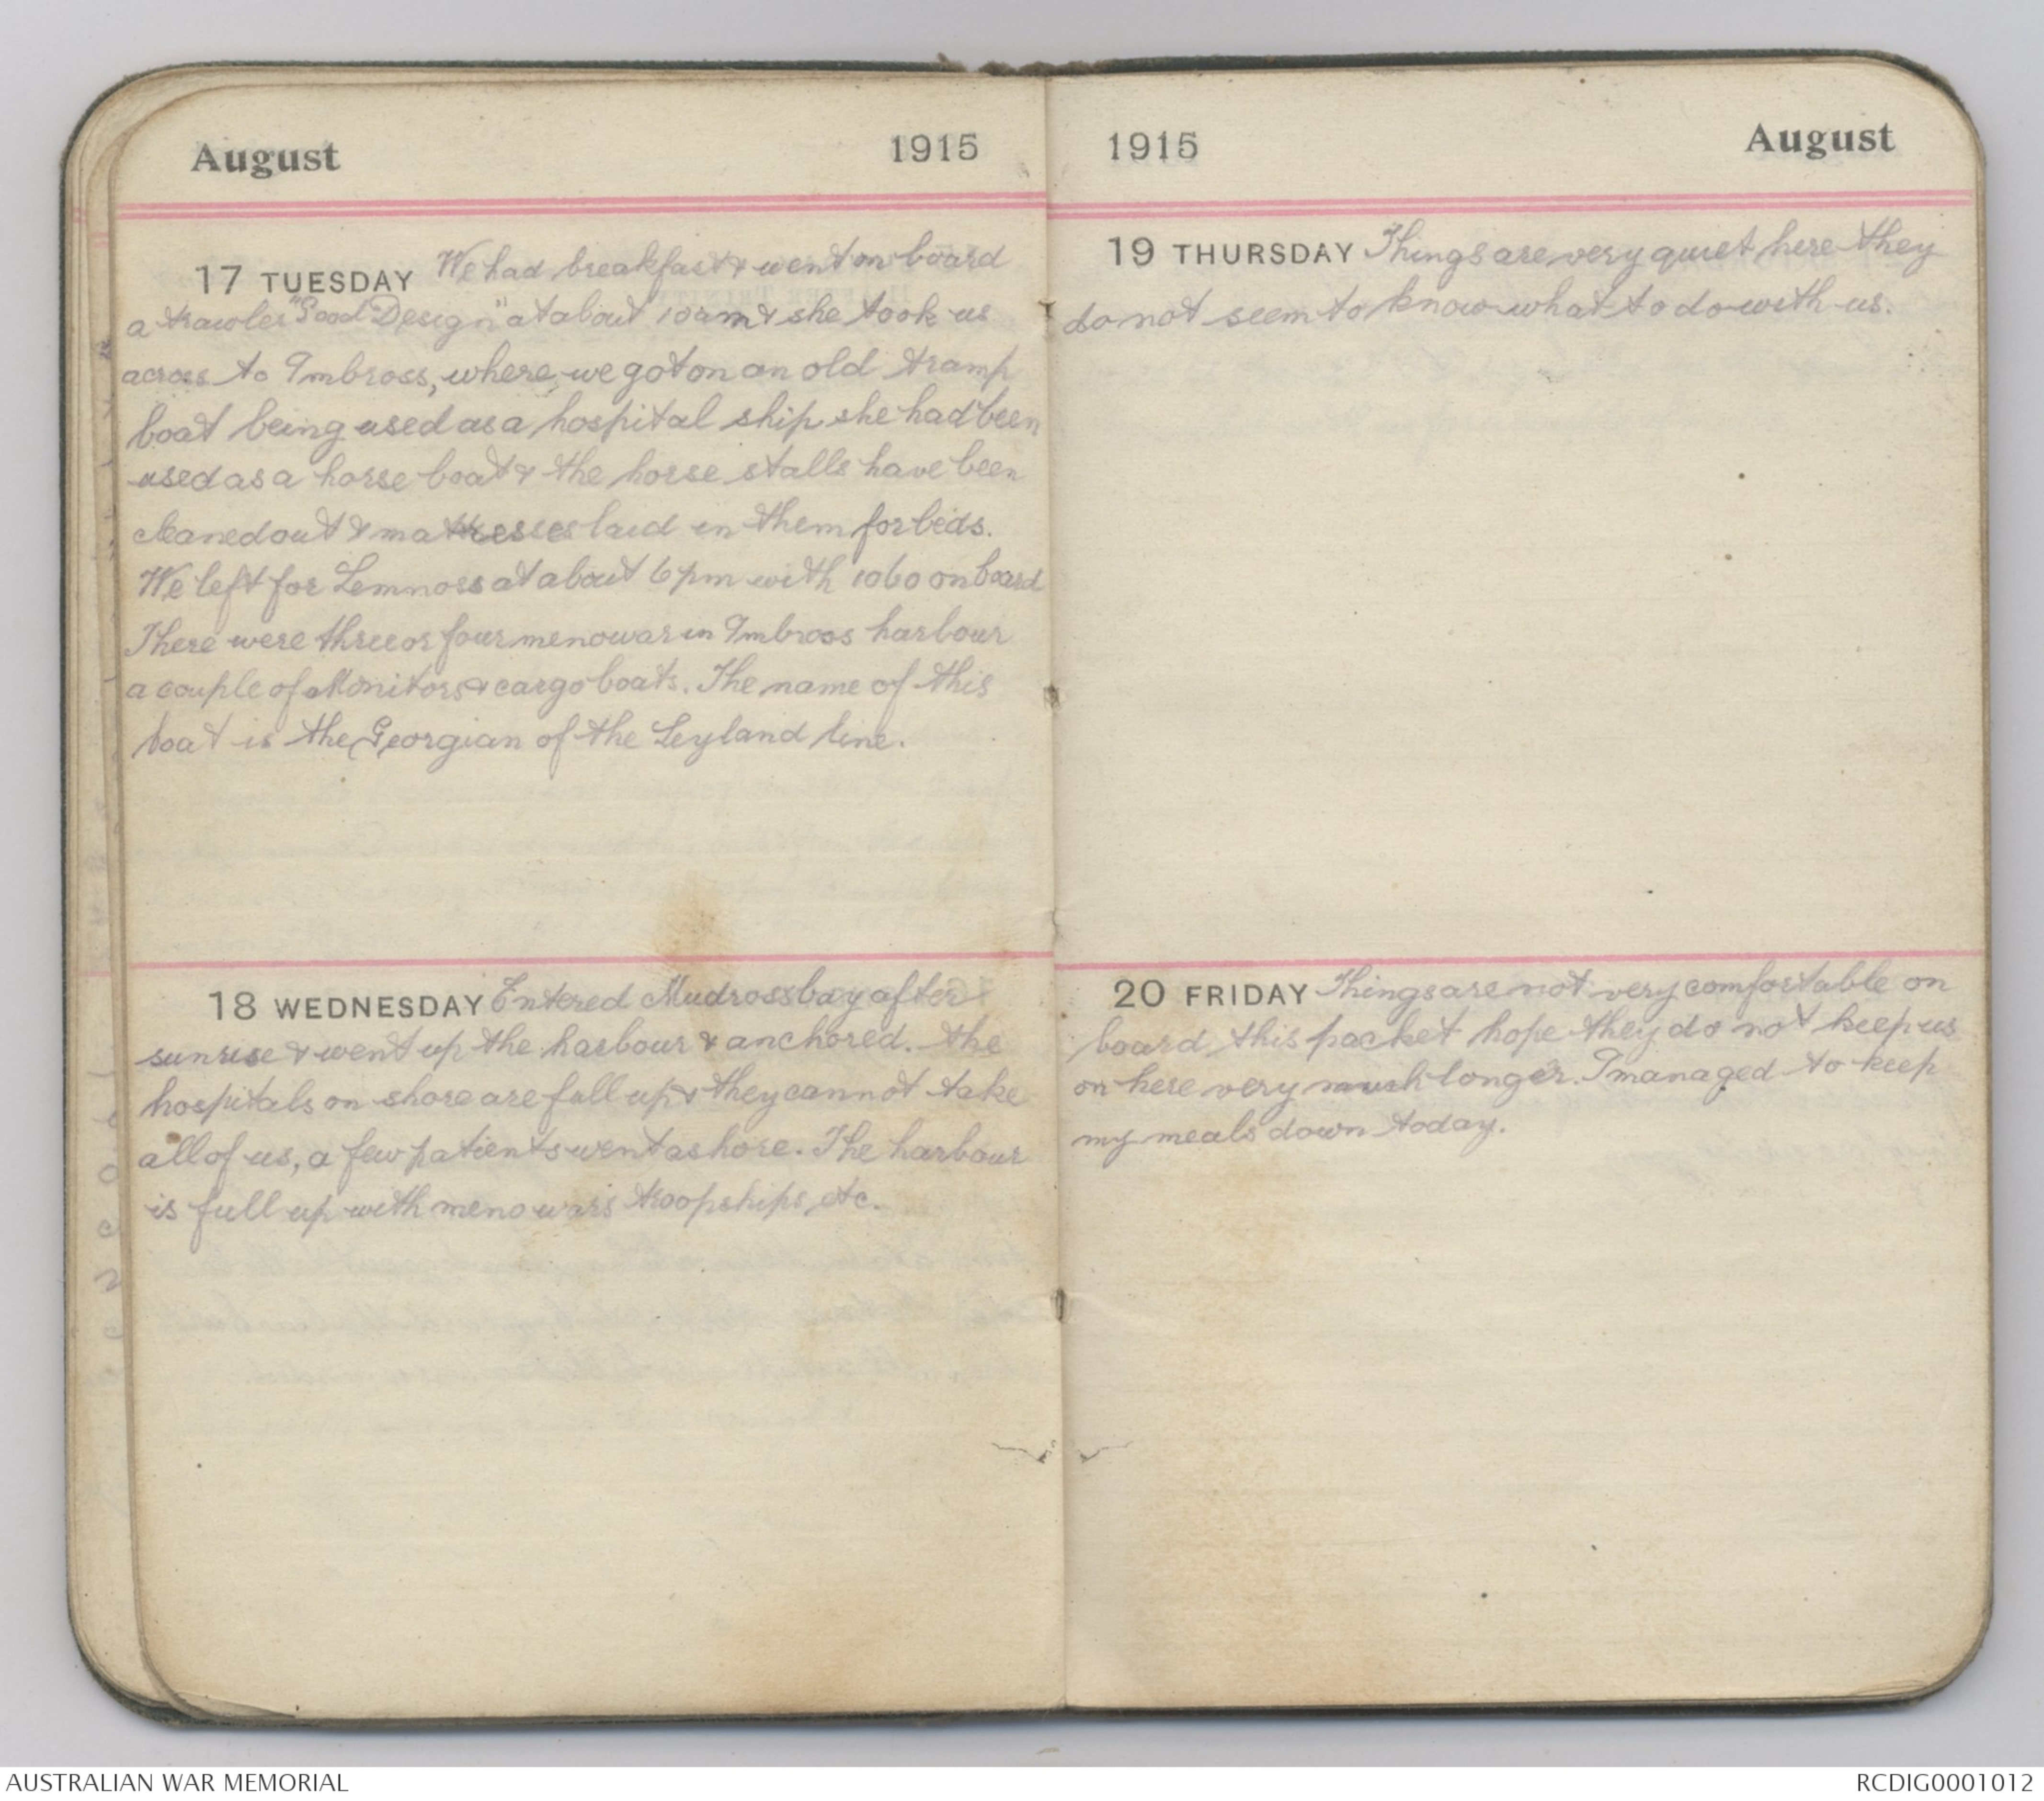 August 1915
17 TUESDAY We had breakfast & went on board
a trawler "Good Design" at about 10am & she took us
across to Imbross, where we got on an old tramp
boat being used as a hospital ship, she had been
used as a horse boat & the horse stalls have been
cleaned out & mattresses laid in them for beds.
We left for Lemnoss at about 6pm with 1060 on board
There were three or four menowar in Imbross harbour
a couple of Monitors & cargo boats. The name of this
boat is the Georgian of the Leyland line.
18 WEDNESDAY Entered Mudross bay after
sunrise & went up the harbour & anchored. the
hospitals on shore are full up & they cannot take
all of us, a few patients went ashore. The harbour
is full up with menowars troopships, etc.
1915 August
19 THURSDAY Things are very quiet here they
do not seem to know what to do with us.
20 FRIDAY Things are not very comfortable on
board this packet hope they do not keep us
on here very much longer. I managed to keep
my meals down today.
AUSTRALIAN WAR MEMORIAL RCDIG0001012